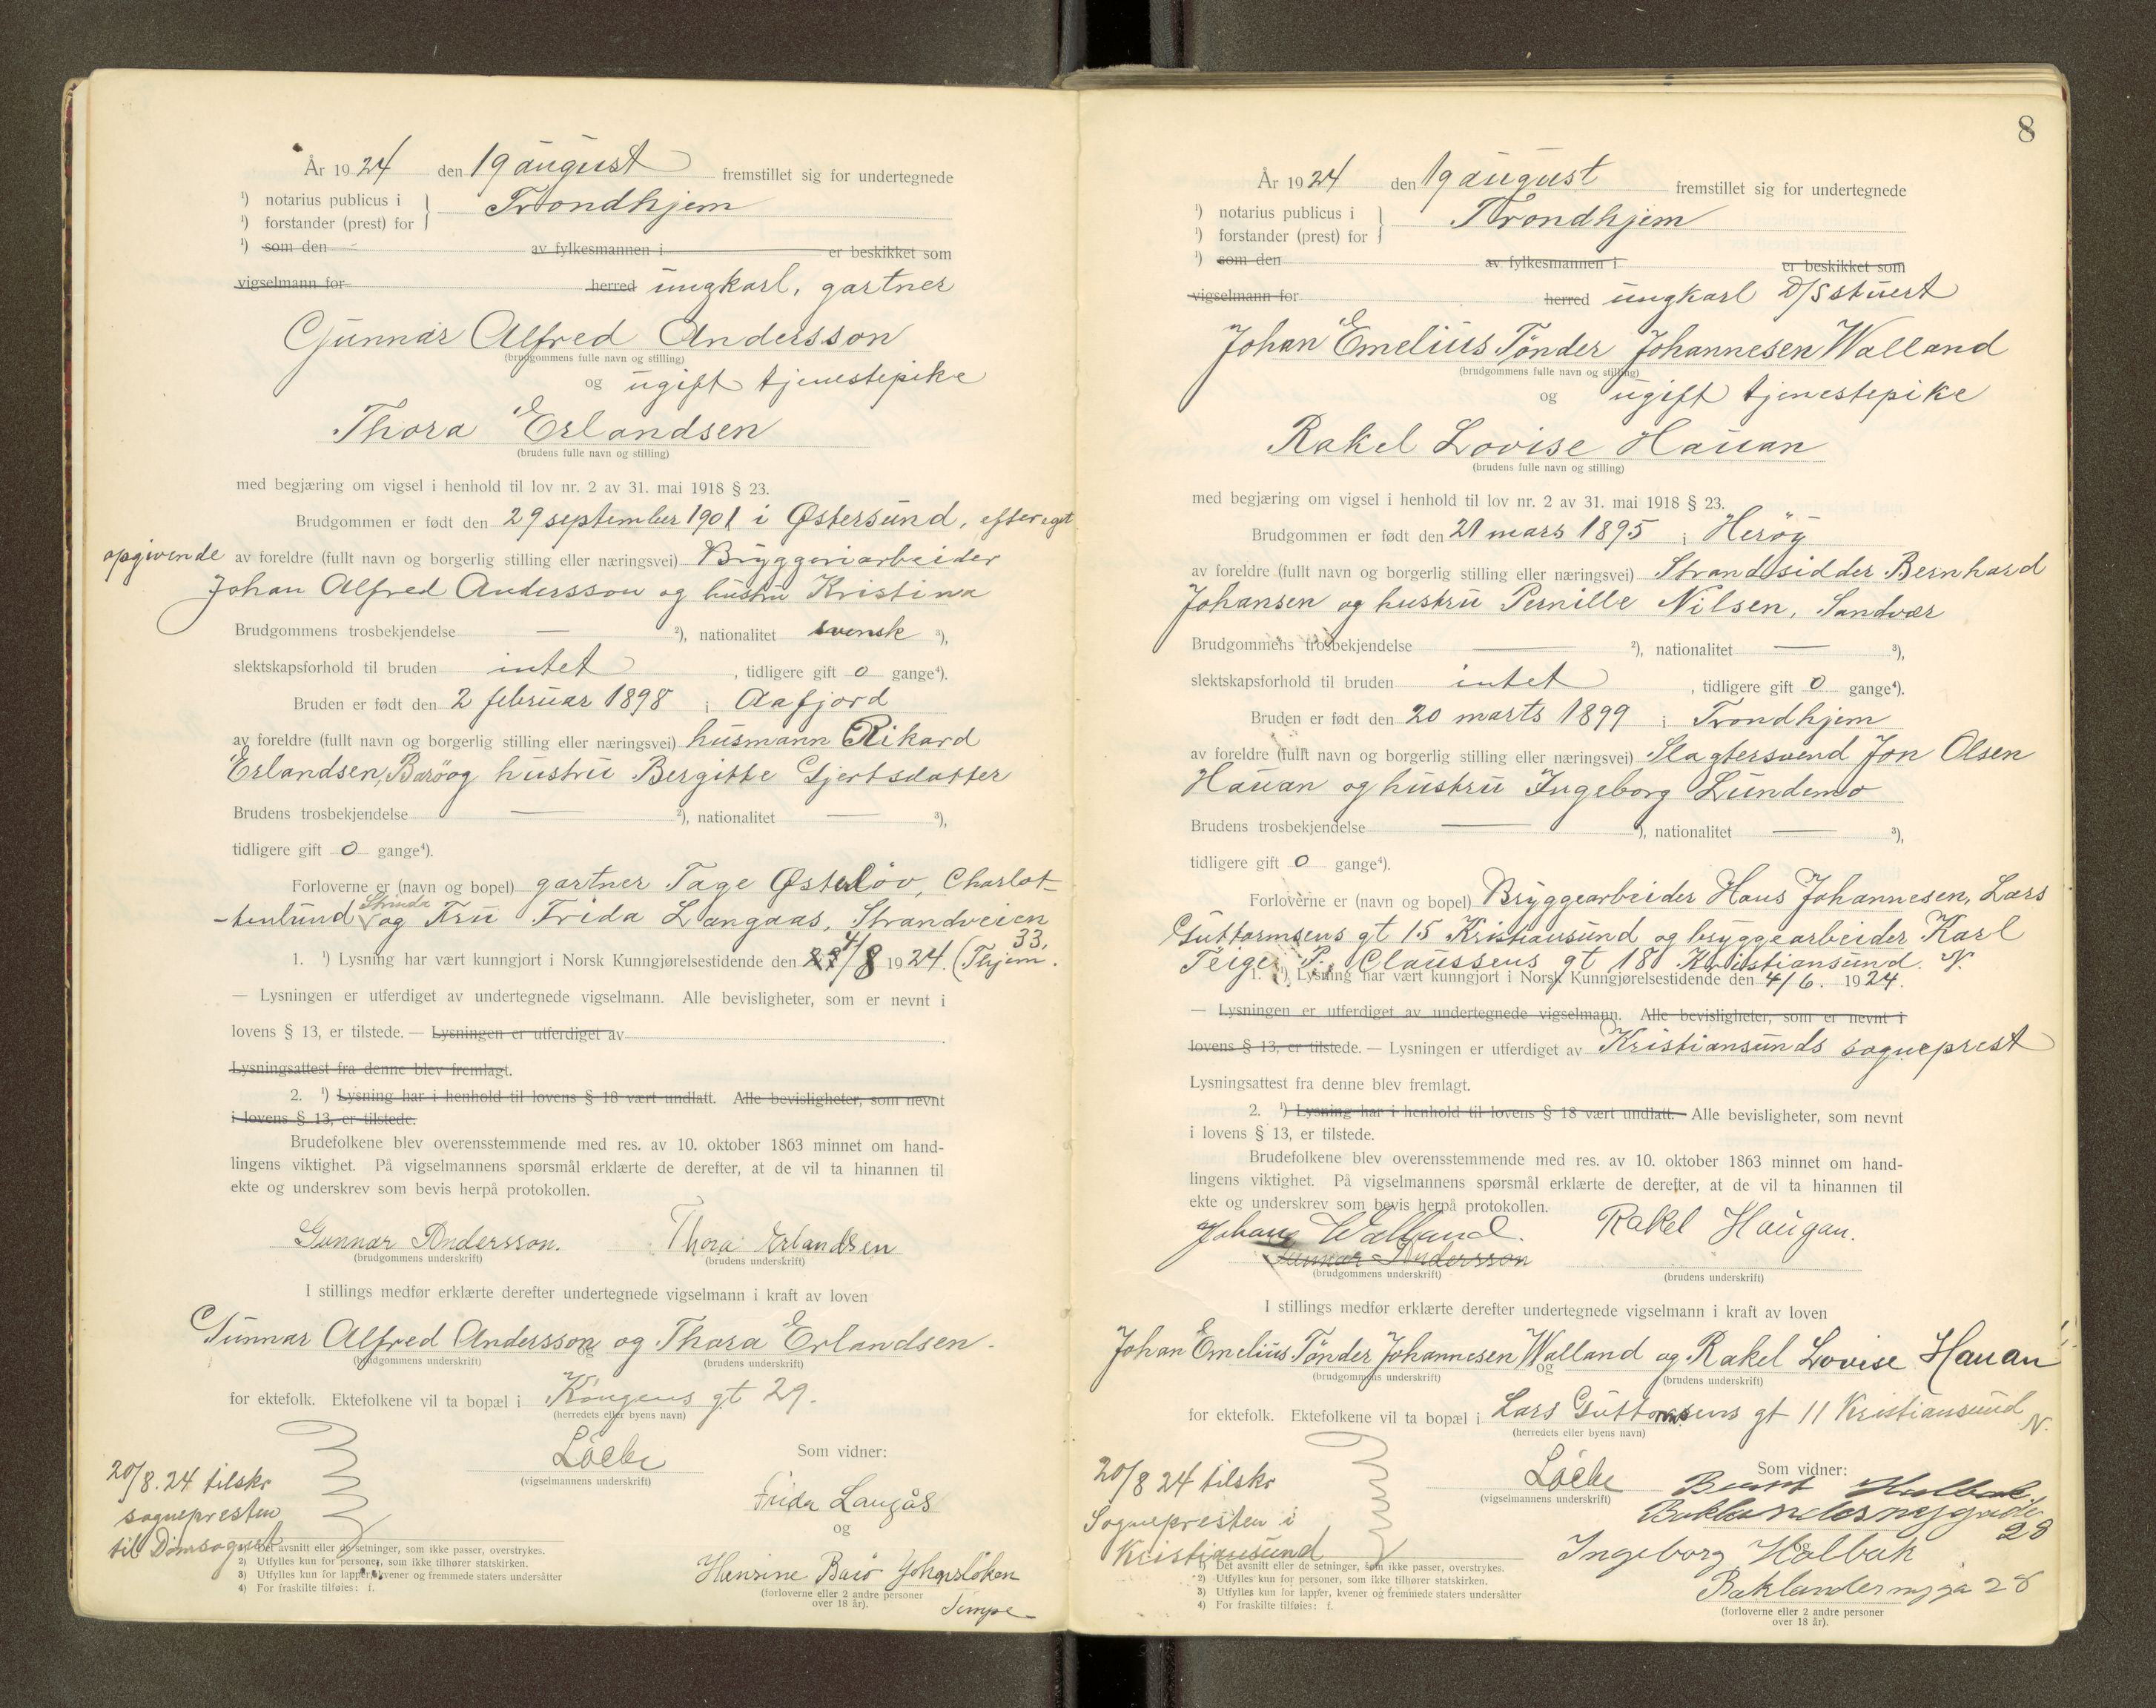 År 1924 den 19 august fremstillet sig for undertegnede
¹) notarius publicus i
¹) forstander (prest) for } Trondhjem
¹) som den av fylkesmannen i er beskikket som
vigselmann for herred ungkarl, gartner
Gunnar Alfred Andersson
(brudgommens fulle navn og stilling)
og ugift tjenestepike
Thora Erlandsen
(brudens fulle navn og stilling)
med begjæring om vigsel i henhold til lov nr. 2 av 31. mai 1918 § 23.
Brudgommen er født den 29 september 1901 i Østersund, efter eget
opgivende av foreldre (fullt navn og borgerlig stilling eller næringsvei) Bryggeriarbeider
Johan Alfred Andersson og hustru Kristina
Brudgommens trosbekjendelse — ²), nationalitet svensk ³),
slektskapsforhold til bruden intet , tidligere gift 0 gange⁴).
Bruden er født den 2 februar 1898 i Aafjord
av foreldre (fullt navn og borgerlig stilling eller næringsvei) husmann Rikard
Erlandsen, Barö og hustru Bergitte Gjertsdatter
Brudens trosbekjendelse — ²), nationalitet — ³),
tidligere gift 0 gange⁴).
Forloverne er (navn og bopel) gartner Tage Østerlöv, Charlot-
-tenlund Strinda og Fru Frida Langaas, Strandveien
33,
1. ¹) Lysning har vært kunngjort i Norsk Kunngjørelsestidende den 4/8 1924. (Thjem.
— Lysningen er utferdiget av undertegnede vigselmann. Alle bevisligheter, som er nevnt i
lovens § 13, er tilstede. — Lysningen er utferdiget av
Lysningsattest fra denne blev fremlagt.
2. ¹) Lysning har i henhold til lovens § 18 vært undlatt. Alle bevisligheter, som nevnt
i lovens § 13, er tilstede.
Brudefolkene blev overensstemmende med res. av 10. oktober 1863 minnet om hand-
lingens viktighet. På vigselmannens spørsmål erklærte de derefter, at de vil ta hinannen til
ekte og underskrev som bevis herpå protokollen.
Gunnar Andersson. Thora Erlandsen
(brudgommens underskrift) (brudens underskrift)
I stillings medfør erklærte derefter undertegnede vigselmann i kraft av loven
Gunnar Alfred Andersson og Thora Erlandsen.
(brudgommens underskrift) og (brudens underskrift)
for ektefolk. Ektefolkene vil ta bopæl i Kongens gt 29.
(herredets eller byens navn)
Löcke Som vidner:
(vigselmannens underskrift)
20/8.24 tilskr
sognepresten
til Domsognet
Frida Langås
og
Hensine Barö Johnsløken
Tempe
(forloverne eller 2 andre personer
over 18 år).
¹) Det avsnitt eller de setninger, som ikke passer, overstrykes.
2) Utfylles kun for personer, som ikke tilhører statskirken.
3) Utfylles kun for lapper, kvener og fremmede staters undersåtter
4) For fraskilte tilføies: f.
8
År 1924 den 19 august fremstillet sig for undertegnede
¹) notarius publicus i
¹) forstander (prest) for } Trondhjem
¹) som den av fylkesmannen i er beskikket som
vigselmann for herred ungkarl D/S stuert
Johan Emelius Tönder Johannesen Walland
(brudgommens fulle navn og stilling)
og ugift tjenestepike
Rakel Lovise Hauan
(brudens fulle navn og stilling)
med begjæring om vigsel i henhold til lov nr. 2 av 31. mai 1918 § 23.
Brudgommen er født den 21 mars 1895 i Heröy
av foreldre (fullt navn og borgerlig stilling eller næringsvei) Strandsidder Bernhard
Johansen og hustru Pernille Nilsen, Sandvær
Brudgommens trosbekjendelse — ²), nationalitet — ³),
slektskapsforhold til bruden intet , tidligere gift 0 gange⁴).
Bruden er født den 20 marts 1899 i Trondhjem
av foreldre (fullt navn og borgerlig stilling eller næringsvei) Slagtersvend Jon Olsen
Hauan og hustru Ingeborg Lundemo
Brudens trosbekjendelse — ²), nationalitet — ³),
tidligere gift 0 gange⁴).
Forloverne er (navn og bopel) Bryggearbeider Hans Johannesen, Lars
Guttormsens gt 15 Kristiansund og bryggearbeider Karl
Teige P. Claussens gt 18 Kristiansund. N.
1. ¹) Lysning har vært kunngjort i Norsk Kunngjørelsestidende den 4/6. 1924.
— Lysningen er utferdiget av undertegnede vigselmann. Alle bevisligheter, som er nevnt i
lovens § 13, er tilstede. — Lysningen er utferdiget av Kristiansunds sogneprest
Lysningsattest fra denne blev fremlagt.
2. ¹) Lysning har i henhold til lovens § 18 vært undlatt. Alle bevisligheter, som nevnt
i lovens § 13, er tilstede.
Brudefolkene blev overensstemmende med res. av 10. oktober 1863 minnet om hand-
lingens viktighet. På vigselmannens spørsmål erklærte de derefter, at de vil ta hinannen til
ekte og underskrev som bevis herpå protokollen.
Johan Walland. Rakel Haugan.
Gunnar Andersson
(brudgommens underskrift) (brudens underskrift)
I stillings medfør erklærte derefter undertegnede vigselmann i kraft av loven
Johan Emelius Tönder Johannesen Walland og Rakel Lovise Hauan
(brudgommens underskrift) og (brudens underskrift)
for ektefolk. Ektefolkene vil ta bopæl i Lars Guttormsens gt 11 Kristiansund N.
(herredets eller byens navn)
Löcke Som vidner:
(vigselmannens underskrift)
20/8 24 tilskr
Sognepresten i
Kristiansund
Holbak
28
og
Ingeborg Holbak
28
(forloverne eller 2 andre personer
over 18 år).
¹) Det avsnitt eller de setninger, som ikke passer, overstrykes.
2) Utfylles kun for personer, som ikke tilhører statskirken.
3) Utfylles kun for lapper, kvener og fremmede staters undersåtter
4) For fraskilte tilføies: f.